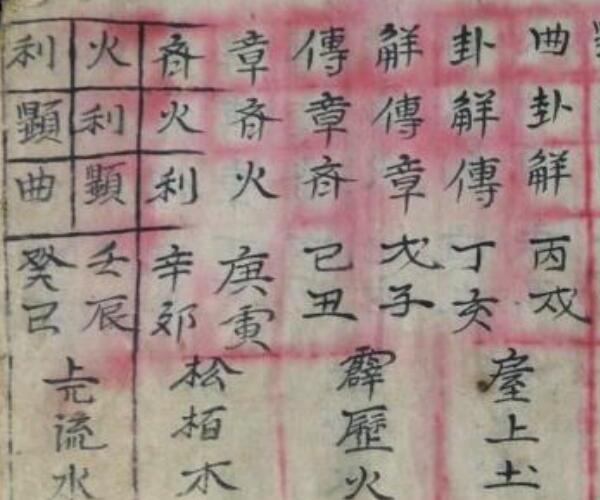 曲卦觧丙戌
卦觧傳丁亥
屋上土
觧傳章戊子
傳章斉己丑
霹歷火
章斉火庚寅
斉火利辛卯
松栢木
火利顯壬辰
利顯曲癸巳
流水